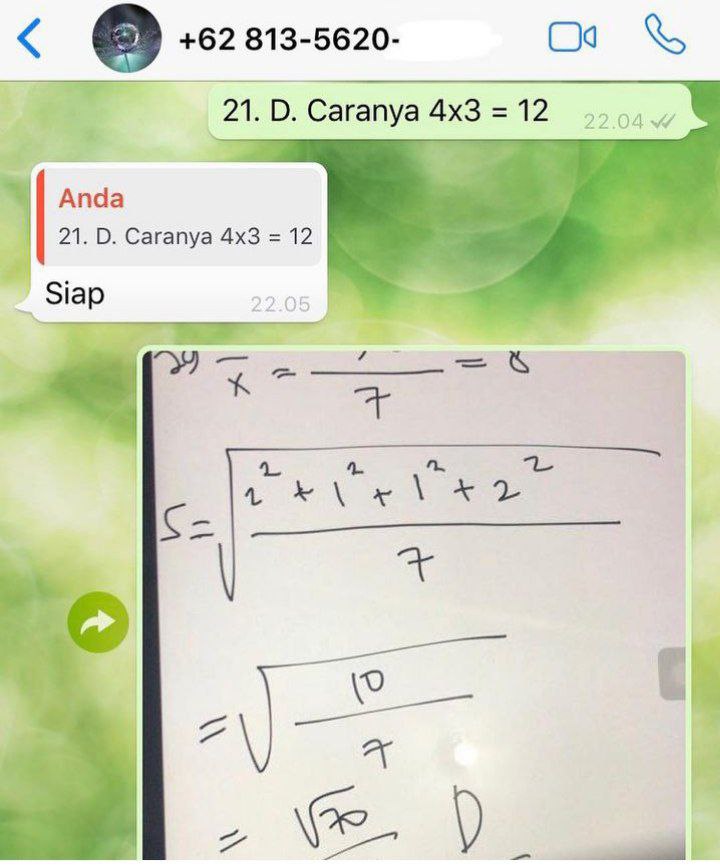 +62 813-5620-
21. D. Caranya 4x3 = 12
22.04
Anda
21. D. Caranya 4x3 = 12
Siap
22.05
x̄ = 7 = 8
S = √ 2² + 1² + 1² + 2²
7
= √ 10
7
= √70 D